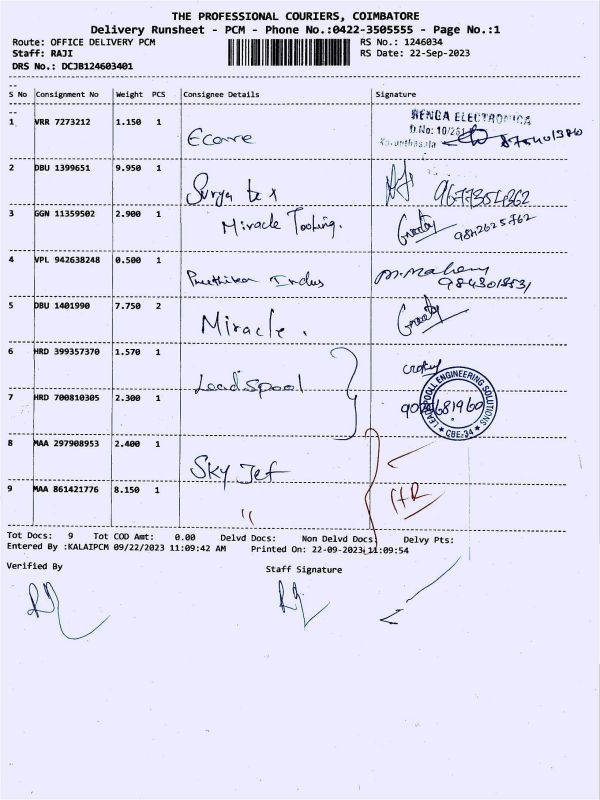 THE PROFESSIONAL COURIERS, COIMBATORE
Delivery Runsheet - PCM - Phone No.:0422-3505555 - Page No.:1
Route: OFFICE DELIVERY PCM
RS No.: 1246034
Staff: RAJI
RS Date: 22-Sep-2023
DRS No.: DCJB124603401
S No Consignment No Weight PCS Consignee Details Signature
1 VRR 7273212 1.150 1 Ecorre
RENGA ELECTRONICA
D.No: 10/281
2 DBU 1399651 9.950 1 Surya tex 9677354362
3 GGN 11359502 2.900 1 Miracle Tooling. 9842625762
4 VPL 942638248 0.500 1 Indus
5 DBU 1401990 7.750 2 Miracle.
6 HRD 399357370 1.570 1 Leadspool
7 HRD 700810305 2.300 1
LEADSPOOL ENGINEERING SOLUTIONS
* CBE-34 *
8 MAA 297908953 2.400 1 Sky Jet
9 MAA 861421776 8.150 1 "
HR
Tot Docs: 9 Tot COD Amt: 0.00 Delvd Docs: Non Delvd Docs: Delvy Pts:
Entered By :KALAIPCM 09/22/2023 11:09:42 AM Printed On: 22-09-2023 11:09:54
Verified By
Staff Signature